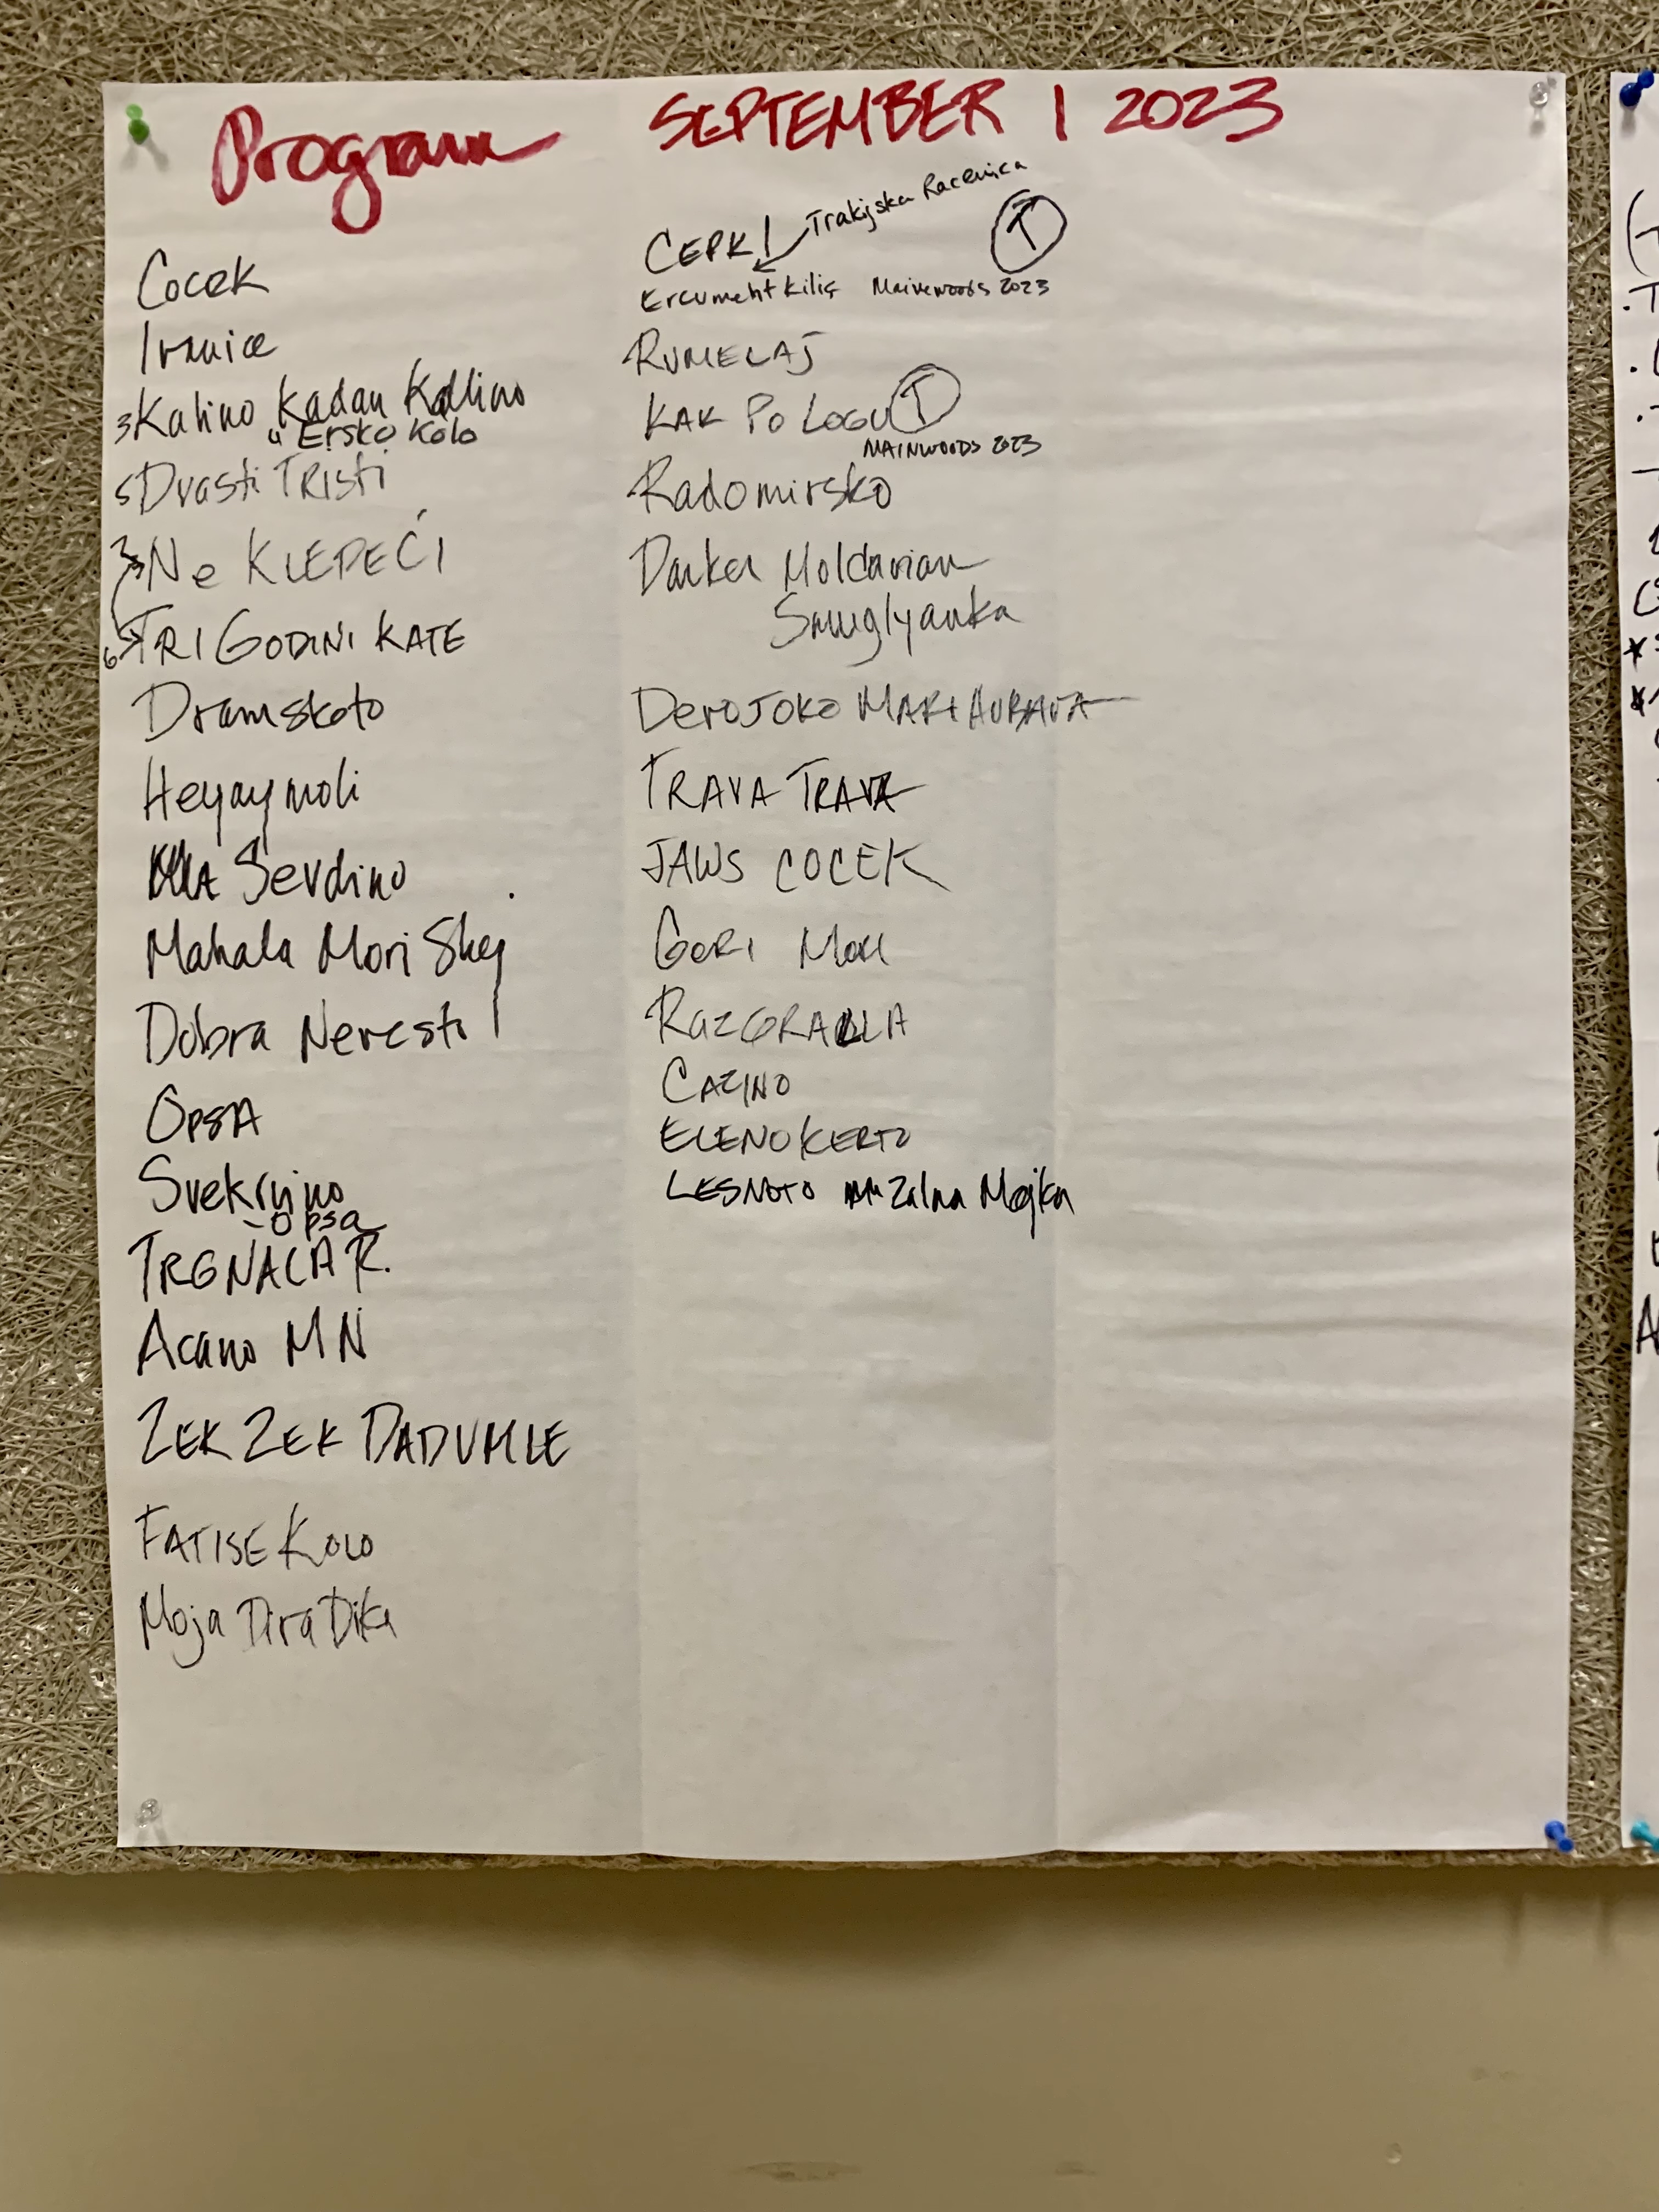 Program SEPTEMBER 1 2023
Cocek
Ivanice
3 Kalino Kadan Kallino
" Ersko Kolo
5 Dvasti TRisti
3 Ne KLEPEĆI
6 TRI GODINI KATE
Dramskoto
Heyaymoli
Sevdino
Mahala Mori Shej
Dobra Nevesto
OPSA
Svekrvino
- Opsa
TRGNALA R.
Acano MN
ZEK ZEK DADUMLE
FATISE KOLO
Moja Diradika
CEPK! Trakijska Racenica T
Ercument Kiliç Mainewoods 2023
RUMELAJ
KAK PO LOGU T
MAINWOODS 2023
Radomirsko
Darker Moldavian
Smuglyanka
DEVOJOKO MARI HUBAVA
TRAVA TRAVA
JAWS COCEK
GORI MORI
RAZGRALLA
CAZINO
ELENO KERTO
LESNOTO Zalna Majka